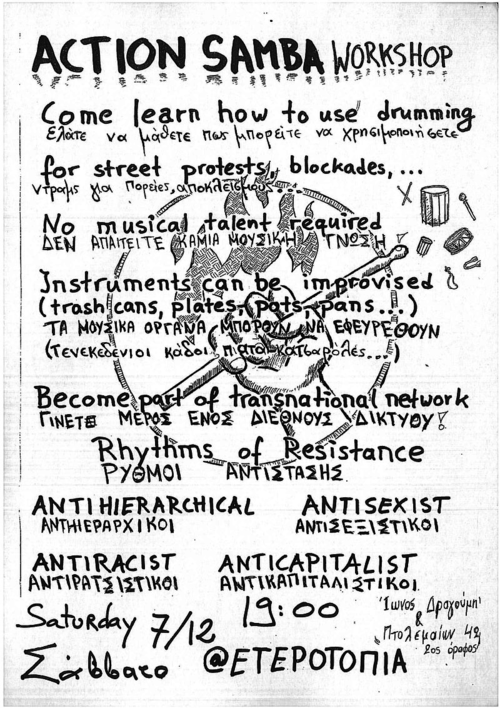 ACTION SAMBA WORKSHOP
Come learn how to use drumming
Ελάτε να μάθετε πως μπορείτε να χρησιμοποιήσετε
for street protests, blockades, ...
ντραμς για πορείες, αποκλεισμούς...
No musical talent required
ΔΕΝ ΑΠΑΙΤΕΙΤΕ ΚΑΜΙΑ ΜΟΥΣΙΚΗ ΓΝΩΣΗ!
Instruments can be improvised
(trash cans, plates, pots, pans...)
ΤΑ ΜΟΥΣΙΚΑ ΟΡΓΑΝΑ ΜΠΟΡΟΥΝ ΝΑ ΕΦΕΥΡΕΘΟΥΝ
(Τενεκεδενιοι κάδοι, πιατοι, κατσαρόλες...)
Become part of transnational network
ΓΙΝΕΤΕ ΜΕΡΟΣ ΕΝΟΣ ΔΙΕΘΝΟΥΣ ΔΙΚΤΥΟΥ!
Rhythms of Resistance
ΡΥΘΜΟΙ ΑΝΤΙΣΤΑΣΗΣ
ANTIHIERARCHICAL ANTISEXIST
ΑΝΤΙΙΕΡΑΡΧΙΚΟΙ ΑΝΤΙΣΕΞΙΣΤΙΚΟΙ
ANTIRACIST ANTICAPITALIST
ΑΝΤΙΡΑΤΣΙΣΤΙΚΟΙ ΑΝΤΙΚΑΠΙΤΑΛΙΣΤΙΚΟΙ
Saturday 7/12 19:00
Σάββατο @ΕΤΕΡΟΤΟΠΙΑ
Ίωνος Δραγούμη
&
Πτολεμαίων 42
2ος όροφος